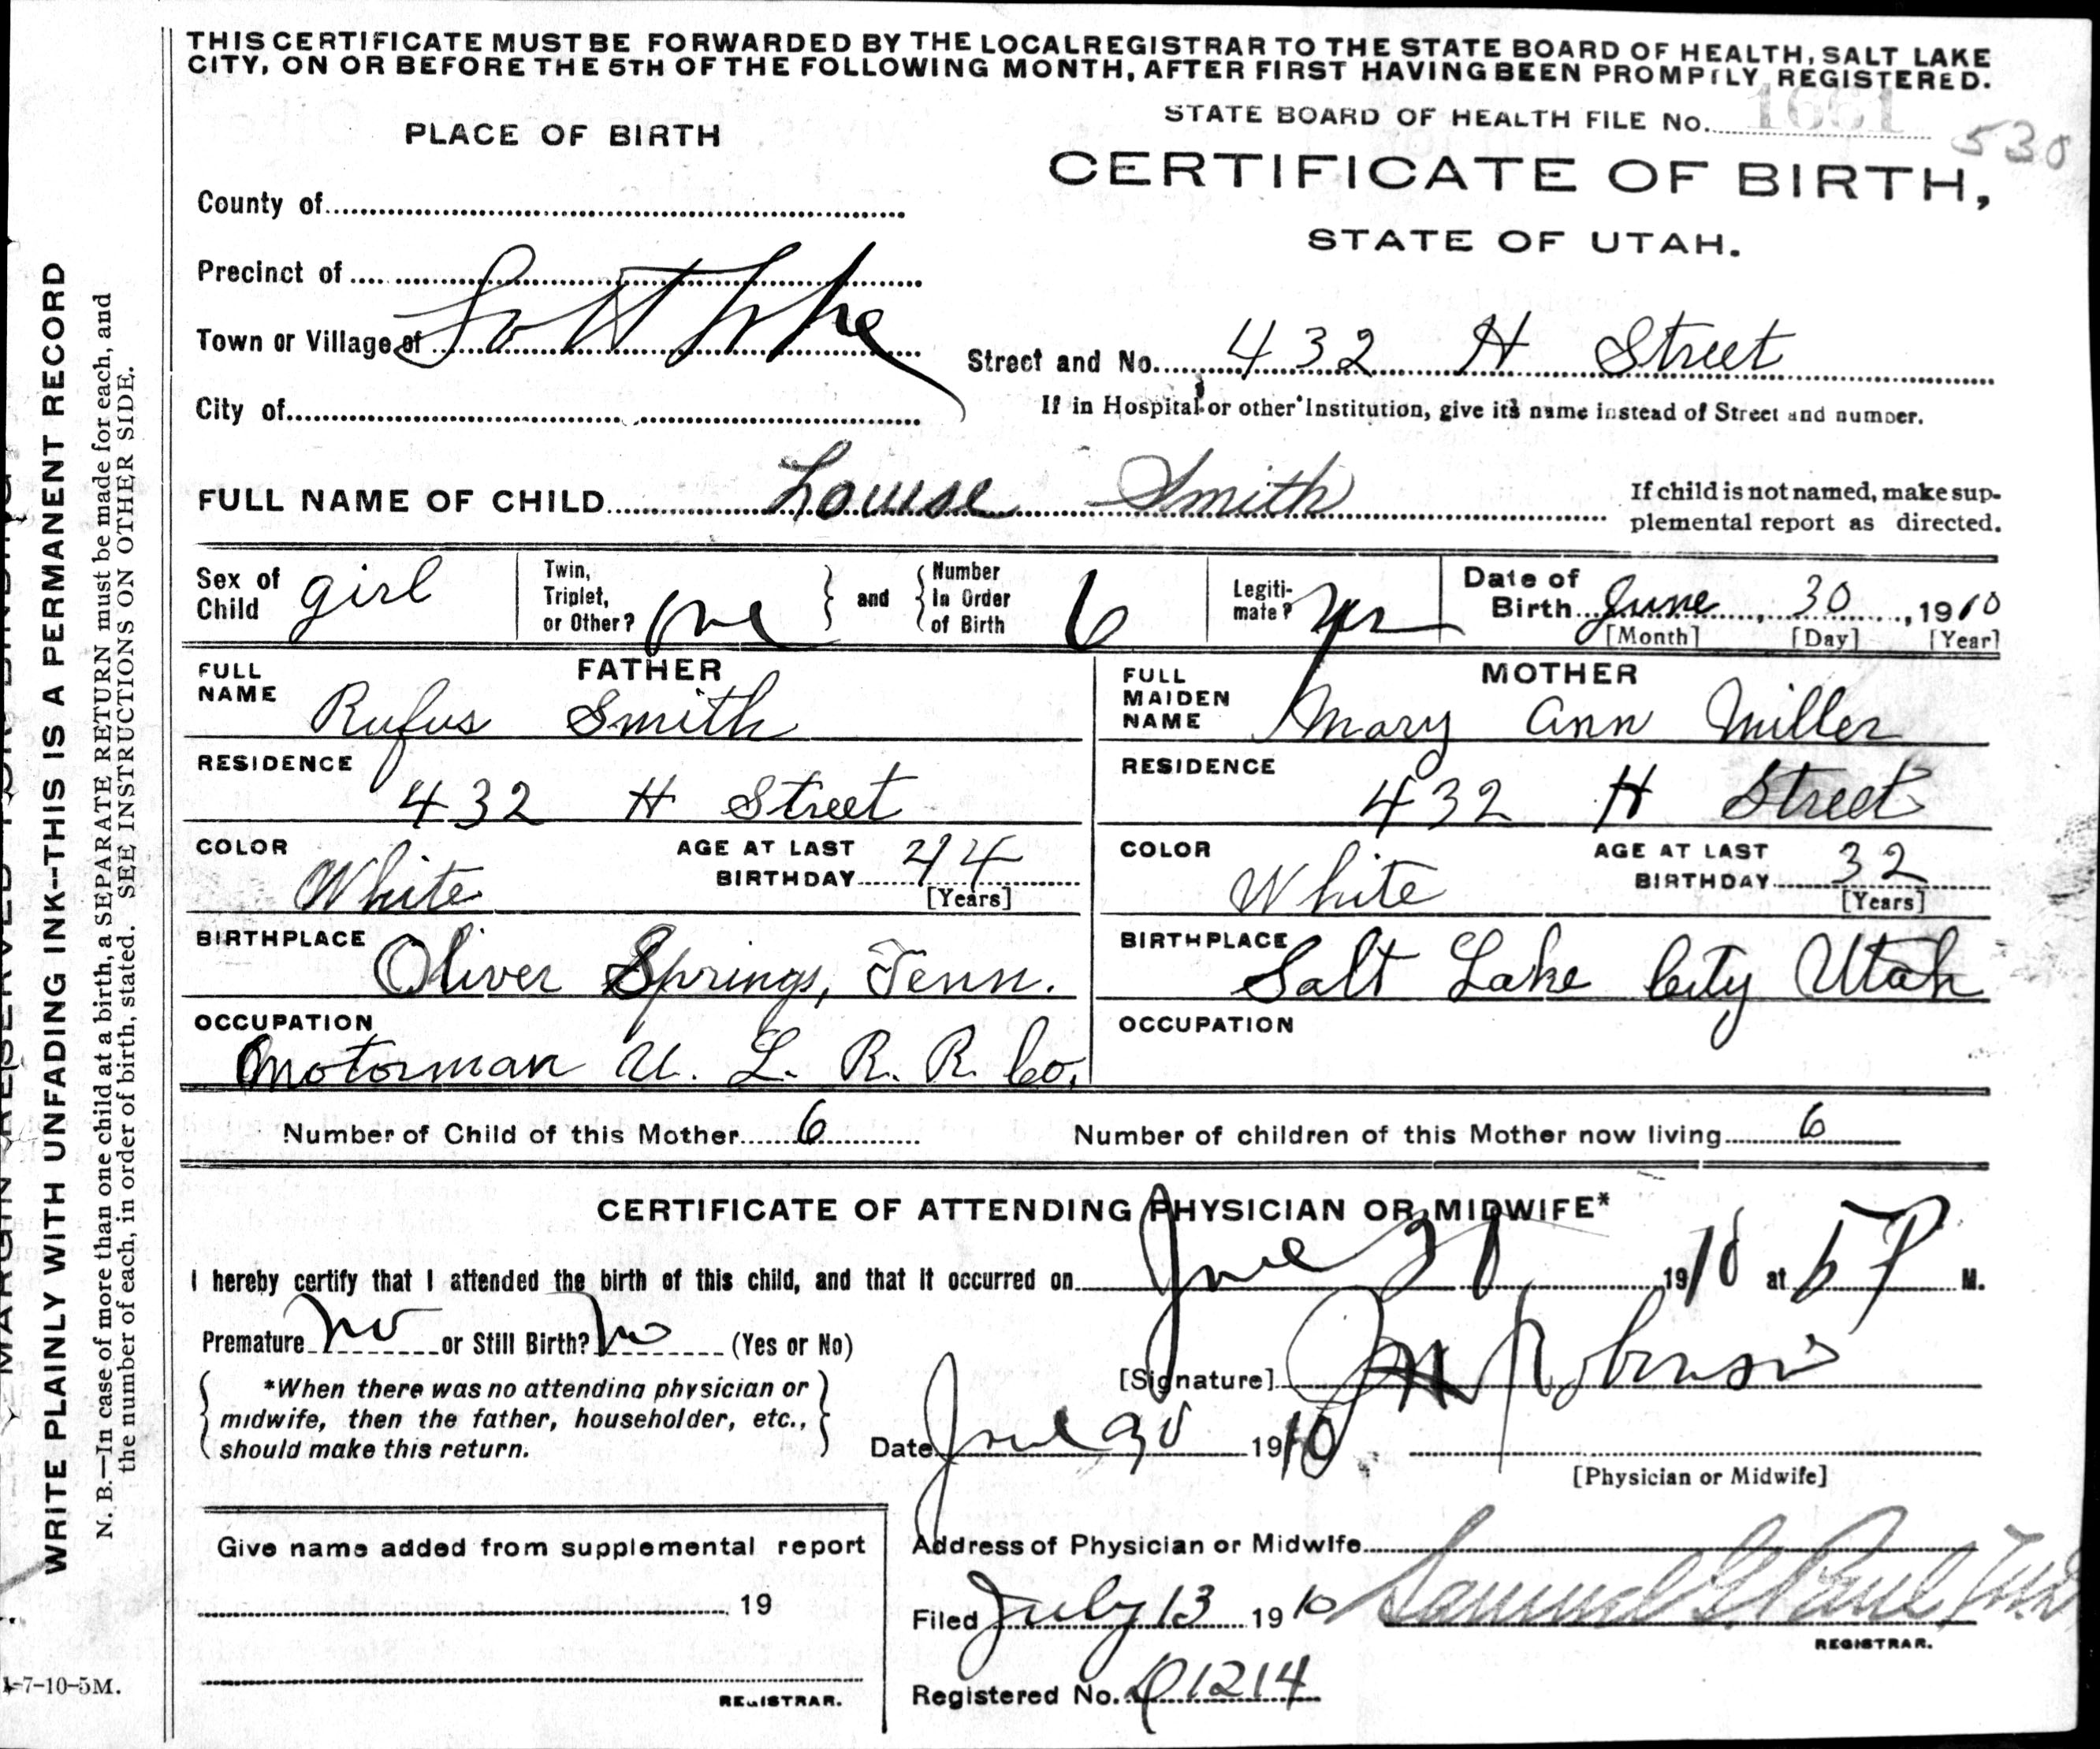 THIS CERTIFICATE MUST BE FORWARDED BY THE LOCAL REGISTRAR TO THE STATE BOARD OF HEALTH, SALT LAKE
CITY, ON OR BEFORE THE 5TH OF THE FOLLOWING MONTH, AFTER FIRST HAVING BEEN PROMPTLY REGISTERED.
STATE BOARD OF HEALTH FILE No. 1661
530
PLACE OF BIRTH
CERTIFICATE OF BIRTH,
STATE OF UTAH.
County of
Precinct of
Town or Village of Salt Lake
City of
Street and No. 432 H Street
If in Hospital or other Institution, give its name instead of Street and number.
FULL NAME OF CHILD Louise Smith
If child is not named, make sup-
plemental report as directed.
Sex of Child girl
Twin, Triplet, or Other? one and Number In Order of Birth 6
Legiti-mate? yes
Date of Birth June 30, 1910
[Month] [Day] [Year]
FATHER
FULL NAME Rufus Smith
RESIDENCE 432 H Street
COLOR White AGE AT LAST BIRTHDAY 44 [Years]
BIRTHPLACE Oliver Springs, Tenn.
OCCUPATION Motorman U. L. R. R. Co.
MOTHER
FULL MAIDEN NAME Mary Ann Miller
RESIDENCE 432 H Street
COLOR White AGE AT LAST BIRTHDAY 32 [Years]
BIRTHPLACE Salt Lake City Utah
OCCUPATION
Number of Child of this Mother 6 Number of children of this Mother now living 6
CERTIFICATE OF ATTENDING PHYSICIAN OR MIDWIFE*
I hereby certify that I attended the birth of this child, and that it occurred on June 30 1910 at P M.
Premature no or Still Birth? no (Yes or No)
*When there was no attending physician or
midwife, then the father, householder, etc.,
should make this return.
[Signature] Robinson
Date June 30 1910
[Physician or Midwife]
Give name added from supplemental report
19
REGISTRAR.
Address of Physician or Midwife
Filed July 13 1910 Samuel G. Paul M.D.
REGISTRAR.
Registered No. 01214
MARGIN RESERVED FOR BINDING
WRITE PLAINLY WITH UNFADING INK--THIS IS A PERMANENT RECORD
N. B.—In case of more than one child at a birth, a SEPARATE RETURN must be made for each, and
the number of each, in order of birth, stated. SEE INSTRUCTIONS ON OTHER SIDE.
-7-10-5M.